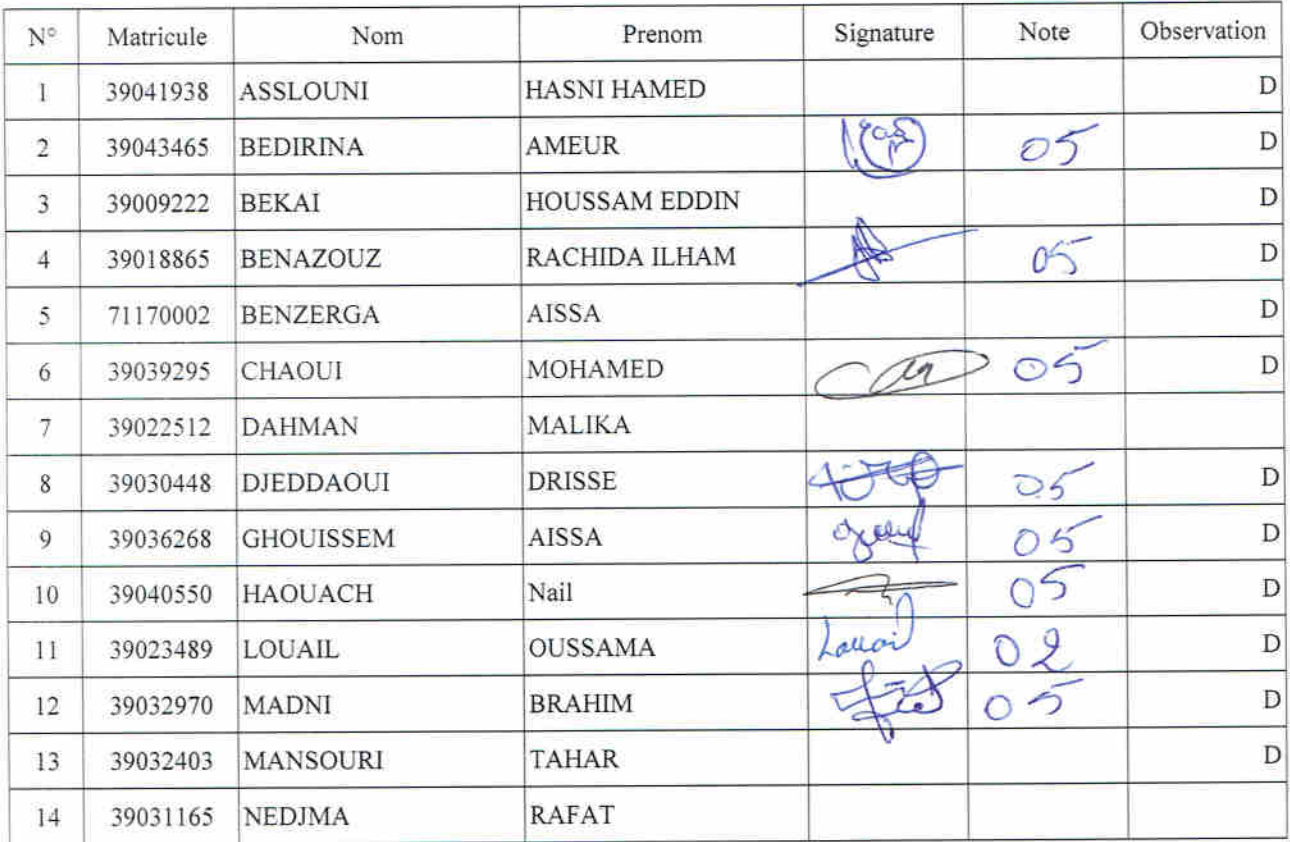 N° Matricule Nom Prenom Signature Note Observation
1 39041938 ASSLOUNI HASNI HAMED D
2 39043465 BEDIRINA AMEUR 05 D
3 39009222 BEKAI HOUSSAM EDDIN D
4 39018865 BENAZOUZ RACHIDA ILHAM 05 D
5 71170002 BENZERGA AISSA D
6 39039295 CHAOUI MOHAMED 05 D
7 39022512 DAHMAN MALIKA
8 39030448 DJEDDAOUI DRISSE 05 D
9 39036268 GHOUISSEM AISSA 05 D
10 39040550 HAOUACH Nail 05 D
11 39023489 LOUAIL OUSSAMA Louail 02 D
12 39032970 MADNI BRAHIM 05 D
13 39032403 MANSOURI TAHAR D
14 39031165 NEDJMA RAFAT